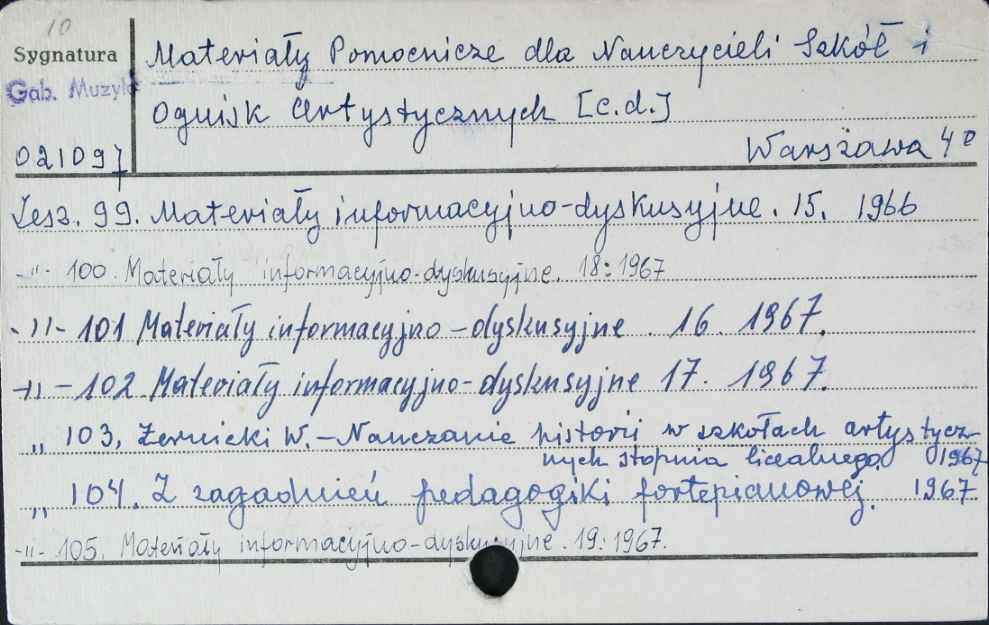 10
Sygnatura
Gab. Muzyk
021097
Materiały Pomocnicze dla Nauczycieli Szkół i
Ognisk Artystycznych [c.d.]
Warszawa 4°
Zesz. 99. Materiały informacyjno-dyskusyjne. 15. 1966
-"- 100. Materiały informacyjno-dyskusyjne. 18: 1967
-"- 101 Materiały informacyjno-dyskusyjne. 16. 1967.
-"- 102 Materiały informacyjno-dyskusyjne 17. 1967.
" 103, Żernicki W. - Nauczanie historii w szkołach artystycz-
nych stopnia licealnego. 1967
" 104. Z zagadnień pedagogiki fortepianowej. 1967
-"- 105. Materiały informacyjno-dyskusyjne. 19: 1967.